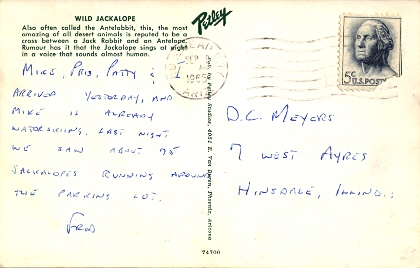 WILD JACKALOPE
Also often called the Antelabbit, this, the most
amazing of all desert animals is reputed to be a
cross between a Jack Rabbit and an Antelope.
Rumour has it that the Jackalope sings at night
in a voice that sounds almost human.
Petley
SEP
196
ARIZ
5¢ U.S. POSTAGE
MIKE, PRIS, PATTY & I
ARRIVED YESTERDAY, AND
MIKE IS ALREADY
WATERSKIING. LAST NIGHT
WE SAW ABOUT 75
JACKALOPES RUNNING AROUND
THE PARKING LOT.
FRED
Petley Studios, 4051 E. Van Buren, Phoenix, Arizona
D.C. MEYERS
7 WEST AYRES
HINSDALE, ILLINOIS
74700